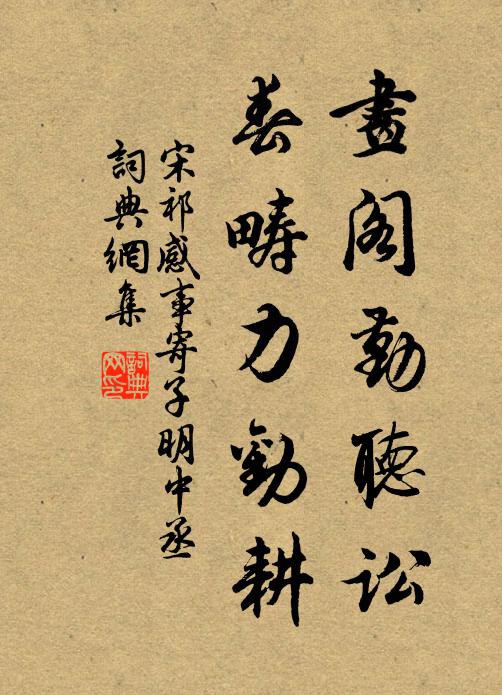 畫阁勤聽訟
春疇力勸耕
宋祁感事寄子明中丞
詞典網集
詞典网印